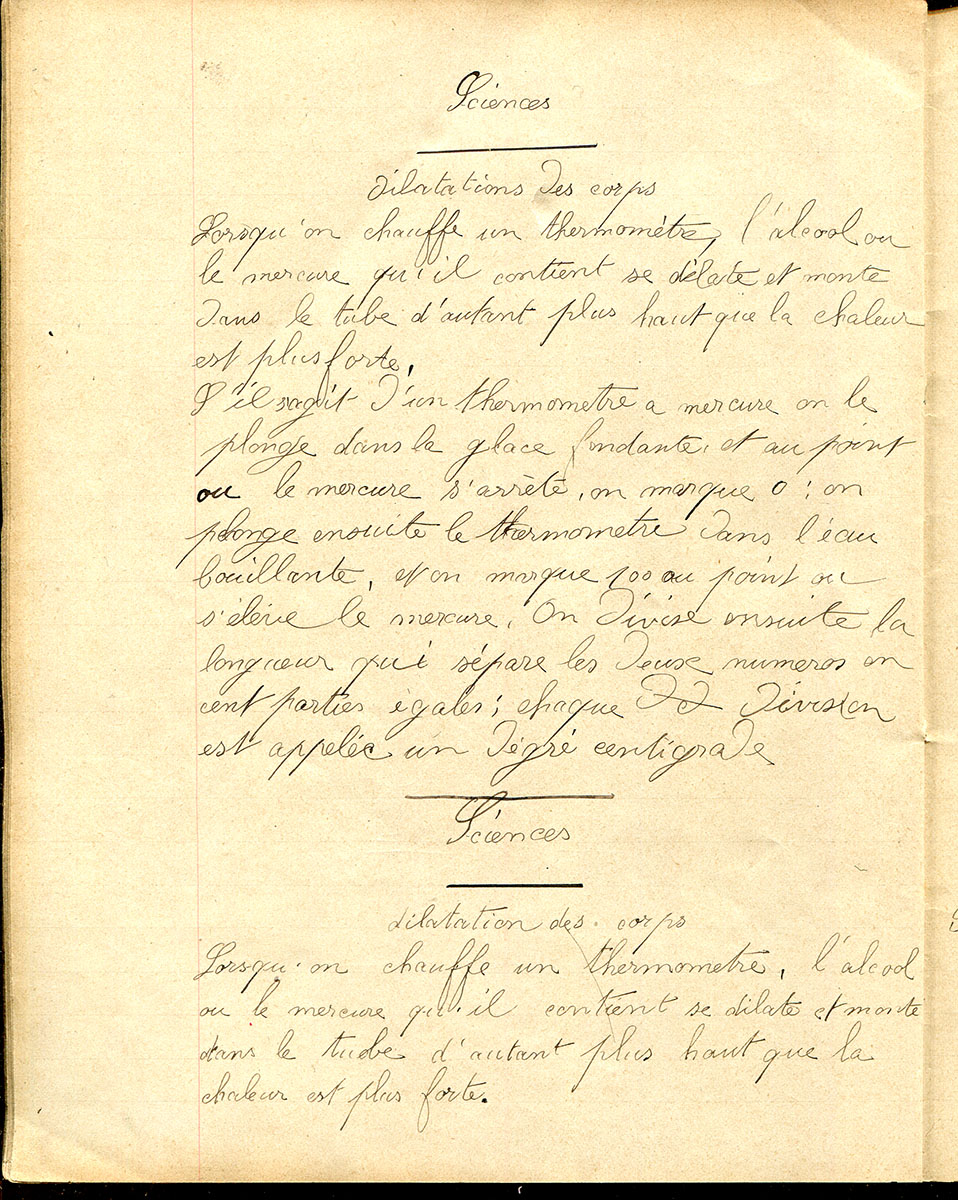 Sciences
dilatations des corps
Lorsqu'on chauffe un thermométre, l'alcool ou
le mercure qu'il contient se délate et monte
dans le tube d'autant plus haut que la chaleur
est plus forte.
S'il sagit d'un thermometre a mercure on le
plonge dans la glace fondante, et au point
ou le mercure s'arrète, on marque 0 ; on
plonge ensuite le thermometre dans l'éau
bouillante, et on marque 100 au point ou
s'éléve le mercure. On divise ensuite la
longueur qui sépare les deuse numeros en
cent parties égales ; chaque division
est appelée un dégré centigrade
Sciences
dilatation des corps
Lorsqu'on chauffe un thermometre, l'alcool
ou le mercure qu'il contient se dilate et monte
dans le tuebe d'autant plus haut que la
chaleur est plus forte.